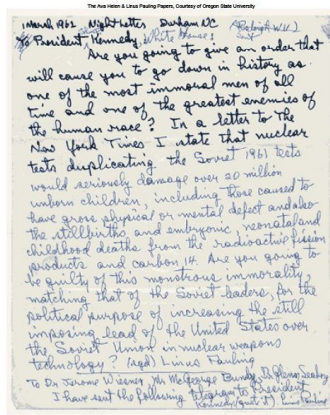 The Ava Helen & Linus Pauling Papers, Courtesy of Oregon State University
1 March 1962 Night Letter Durham NC
To President Kennedy, White House:
Are you going to give an order that
will cause you to go down in history as
one of the most immoral men of all
time and one of the greatest enemies of
the human race? In a letter to The
New York Times I state that nuclear
tests duplicating the Soviet 1961 tests
would seriously damage over 20 million
unborn children, including those caused to
have gross physical or mental defect and also
the stillbirths and embryonic, neonatal and
childhood deaths from the radioactive fission
products and carbon 14. Are you going to
be guilty of this monstrous immorality,
matching that of the Soviet leaders, for the
political purpose of increasing the still
imposing lead of the United States over
the Soviet Union in nuclear weapons
technology? (sgd) Linus Pauling
To Dr. Jerome Wiesner, Mr. McGeorge Bundy, Dr. Glenn Seaborg
I have sent the following telegram to President
Kennedy (quote it) Linus Pauling